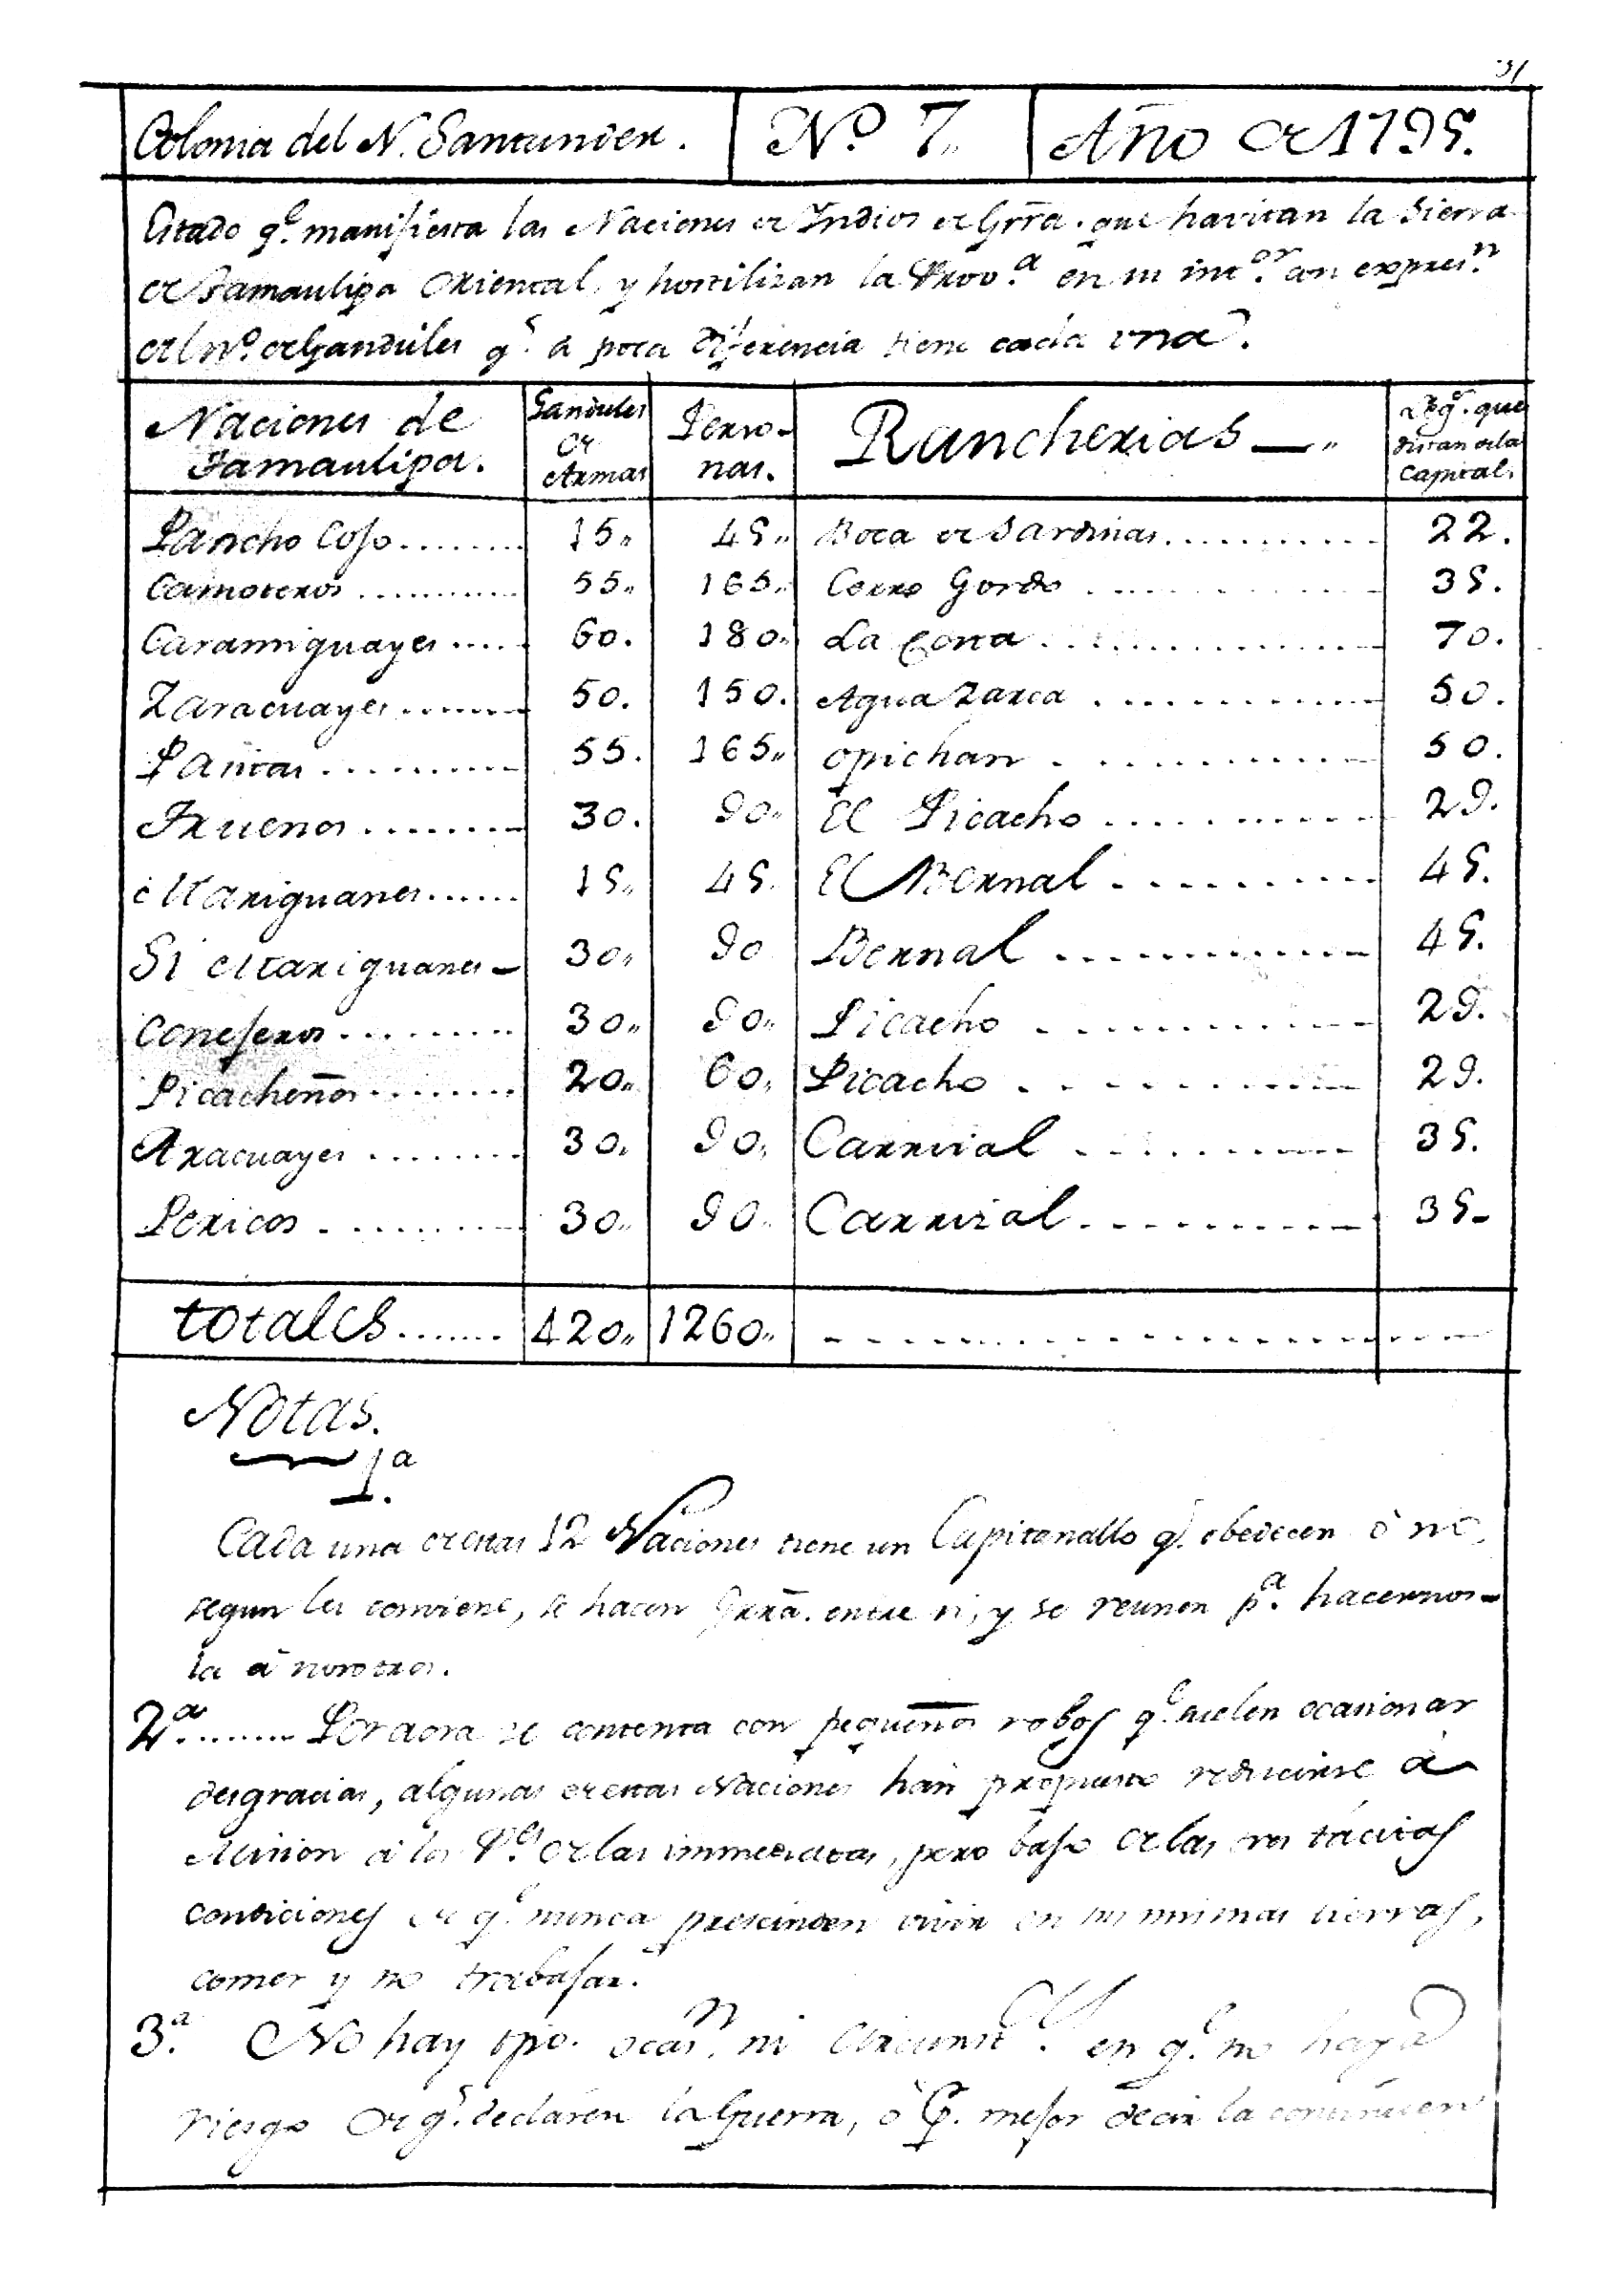 31
Colonia del N. Santander. Nº 7,, Año de 1795.
Estado q.e manifiesta las Naciones de Indios de Grra. que havitan la Sierra
de Tamaulipa Oriental, y hostilizan la Prov.a en su int.or con expres.n
del nº. de Gandules q.e a poca diferencia tiene cada una.
Naciones de Tamaulipa. Gandules de Armas Perso-nas. Rancherias —,, Leg.s que distan de la Capital.
Pancho Coso........ 15,, 45,, Boca de Sardinas........... 22.
Camoteros........... 55,, 165,, Cerro Gordo............ 35.
Caramiguayes..... 60. 180,, La Cona............... 70.
Zaracuayes....... 50. 150. Agua Zarca............ 50.
Pasitas.......... 55. 165,, Opichan............ 50.
Truenos........ 30. 90,, El Picacho........... 29.
Mariguanes...... 15,, 45. El Bernal.......... 45.
Si Mariguanes- 30,, 90 Bernal............ 45.
Conejeros......... 30,, 90,, Picacho............ 29.
Picacheños........ 20,, 60,, Picacho........... 29.
Aracuayes........ 30,, 90,, Carrizal.......... 35.
Pericos......... 30,, 90,, Carrizal.......... 35-
totales....... 420,, 1260,,
Notas.
1a.
Cada una de estas 12 Naciones tiene un Capitanallo q.e obedecen ò no,
segun les conviene, se hacen Grra. entre si, y se reunen p.a hacernos-
la á nosotros.
2a........ Por aora se contenta con pequeños robos q.e suelen ocasionar
desgracias, algunas de estas Naciones han propuesto reducirse à
Mision à los P.es de las immediatas, pero bajo de las tres tácitas
condiciones de q.e nunca prescinden vivir en sus mismas tierras,
comer y no trabajar.
3a. No hay tpo. ocas.n ni circunst.as en q.e no haya
riesgo de q.e declaren la Guerra, ò p. mejor decir la continúen